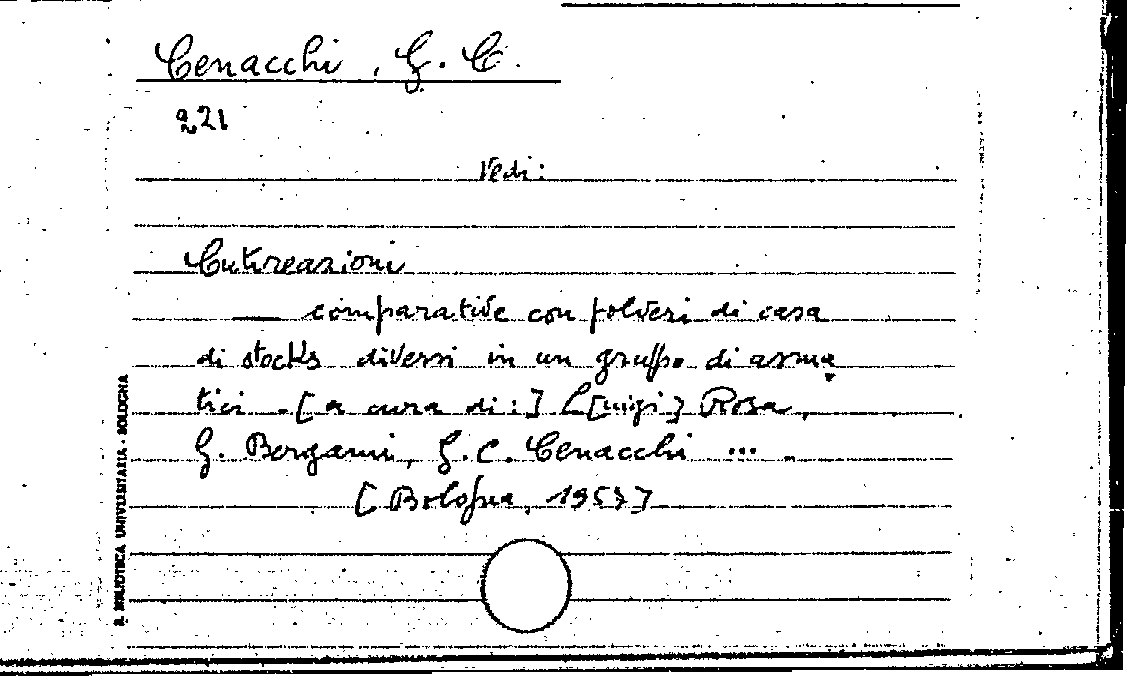 Cenacchi, G. C.
221
Vedi:
Cutireazioni
— comparative con polveri di casa
di stocks diversi in un gruppo di asma
tici . [a cura di:] L[uigi] Rosa,
G. Bergamini, G. C. Cenacchi ... .
[Bologna, 1957]
R. BIBLIOTECA UNIVERSITARIA - BOLOGNA